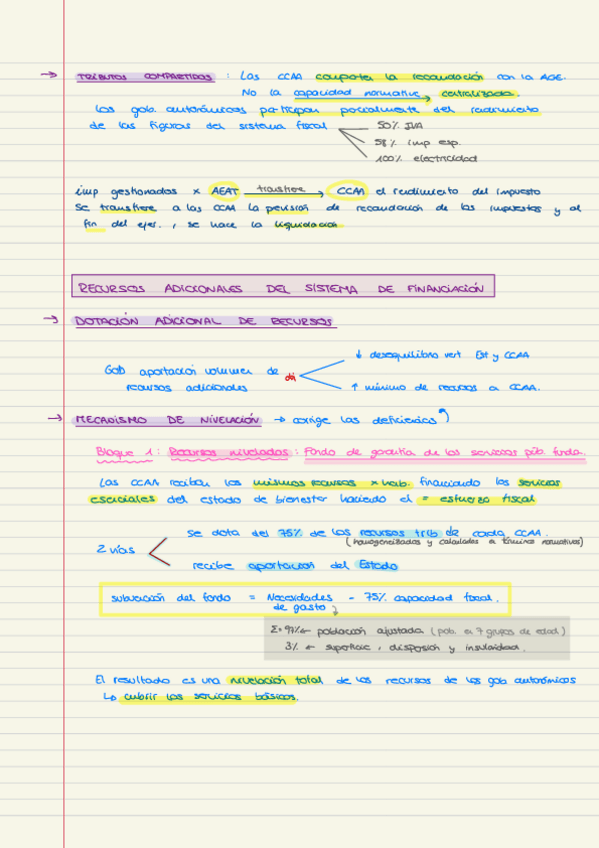 → TRIBUTOS COMPARTIDOS : Las CCAA comparten la recaudación con la AGE.
No la capacidad normativa → centralizada.
Los gob. autonómicos participan parcialmente del rendimiento
de las figuras del sistema fiscal
50% IVA
58% imp esp.
100% electricidad
imp gestionados x AEAT transfiere → CCAA el rendimiento del impuesto
Se transfiere a las CCAA la previsión de recaudación de los impuestos y al
fin del ejer., se hace la liquidación
RECURSOS ADICIONALES DEL SISTEMA DE FINANCIACIÓN
→ DOTACIÓN ADICIONAL DE RECURSOS
↓ desequilibrio vert Est y CCAA
Gob aportación volumen de
recursos adicionales
↑ mínimo de recursos a CCAA.
→ MECANISMO DE NIVELACIÓN → corrige las deficiencias
Bloque 1: Recursos nivelados: Fondo de garantía de los servicios púb. funda.
Las CCAA reciban los mismos recursos x hab. financiando los servicios
esenciales del estado de bienestar haciendo el = esfuerzo fiscal
se dota del 75% de los recursos trib de cada CCAA.
(homogeneizados y calculados a términos normativos)
2 vías
recibe aportación del Estado
subvención del fondo = Necesidades - 75% capacidad fiscal.
de gasto
Σ= 97% ← población ajustada (pob. en 7 grupos de edad)
3% ← superficie, dispersión y insularidad.
El resultado es una nivelación total de los recursos de los gob autonómicos
↳ cubrir los servicios básicos.